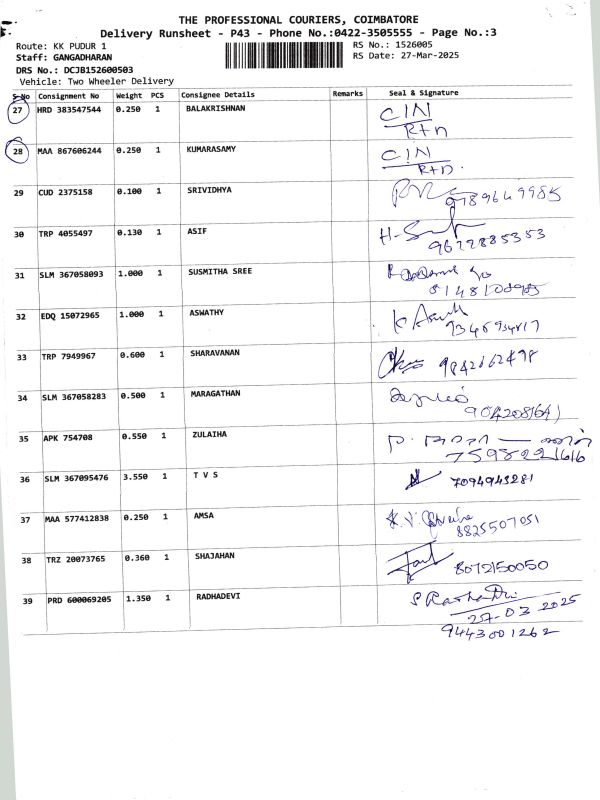 THE PROFESSIONAL COURIERS, COIMBATORE
Delivery Runsheet - P43 - Phone No.:0422-3505555 - Page No.:3
Route: KK PUDUR 1
RS No.: 1526005
Staff: GANGADHARAN
RS Date: 27-Mar-2025
DRS No.: DCJB152600503
Vehicle: Two Wheeler Delivery
S No Consignment No Weight PCS Consignee Details Remarks Seal & Signature
27 HRD 383547544 0.250 1 BALAKRISHNAN C/N
Rtn
28 MAA 867606244 0.250 1 KUMARASAMY C/N
Rtn.
29 CUD 2375158 0.100 1 SRIVIDHYA
9789649985
30 TRP 4055497 0.130 1 ASIF
9672885353
31 SLM 367058093 1.000 1 SUSMITHA SREE
32 EDQ 15072965 1.000 1 ASWATHY K Aswath
33 TRP 7949967 0.600 1 SHARAVANAN 9842662498
34 SLM 367058283 0.500 1 MARAGATHAN
35 APK 754708 0.550 1 ZULAIHA
7598221616
36 SLM 367095476 3.550 1 T V S 7094943281
37 MAA 577412838 0.250 1 AMSA
8825507051
38 TRZ 20073765 0.360 1 SHAJAHAN 8072150050
39 PRD 600069205 1.350 1 RADHADEVI
27-03 2025
9443001262